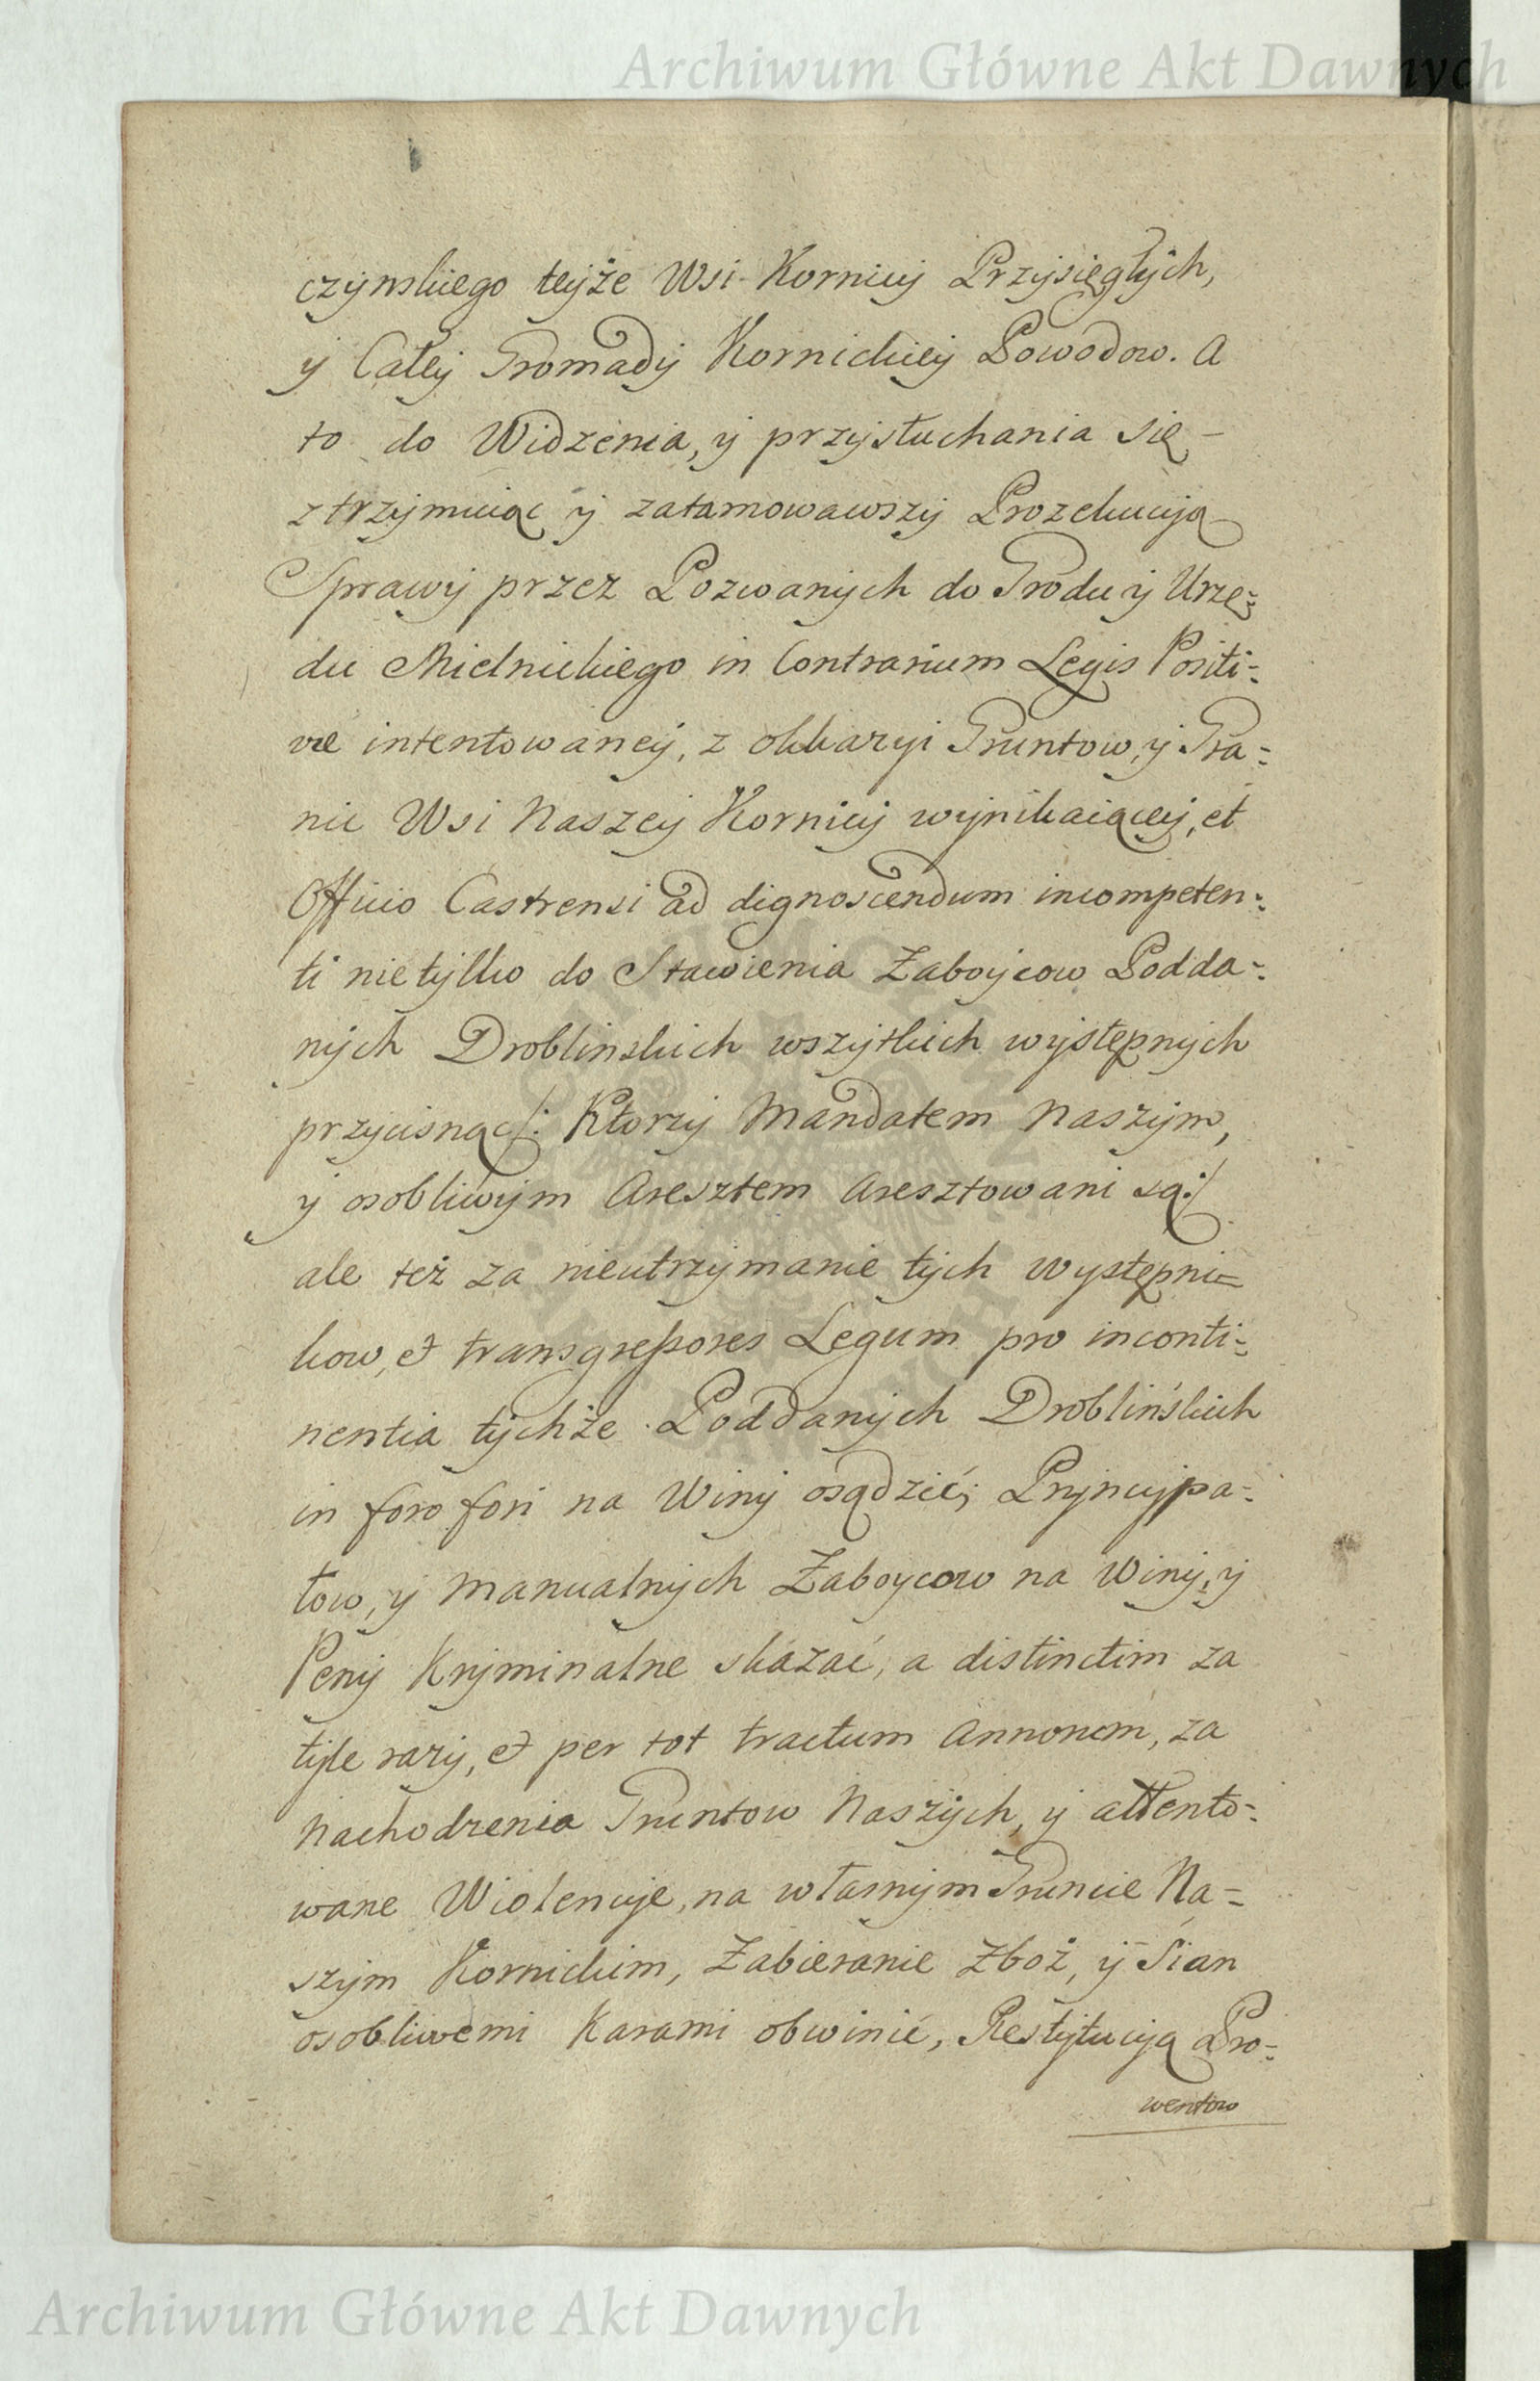 Archiwum Główne Akt Dawnych
czynskiego teyże Wsi Kornicy Przysięgłych,
y Całey Gromady Kornickiey Powodow. A
to do Widzenia, y przysłuchania się –
ztrzymuiąc y zatamowawszy Prozekucyą
Sprawy przez Pozwanych do Grodu y Urzę=
du Mielnickiego in Contrarium Legis Positi=
væ intentowaney, z okkazyi Gruntow, y Gra=
nic Wsi Naszey Kornicy wynikaiącey, et
Officio Castrensi ad dignoscendum incompeten=
ti nie tylko do Stawienia Zaboycow Podda=
nych Droblinskich wszytkich występnych
przycisnąc /: Ktorzy Mandatem Naszym,
y osobliwym Aresztem Aresztowani są :/
ale też za nieutrzymanie tych występni=
kow, et transgressores Legum pro inconti=
nentia tychże Poddanych Droblińskich
in foro fori na Winy osądzić; Pryncypa=
łow, y Manualnych Zaboycow na Winy, y
Peny Kryminalne skázać, a distinctim za
tyle razy, et per tot tractum Annonem, za
Nachodzenia Gruntow Naszych, y attento=
wane Wiolencye, na własnym Gruncie Na=
szym Kornickim, Zabieranie Zboż, y Sian
osobliwemi Karami obwinić, Restytucyą Pro=
wentow
Archiwum Główne Akt Dawnych